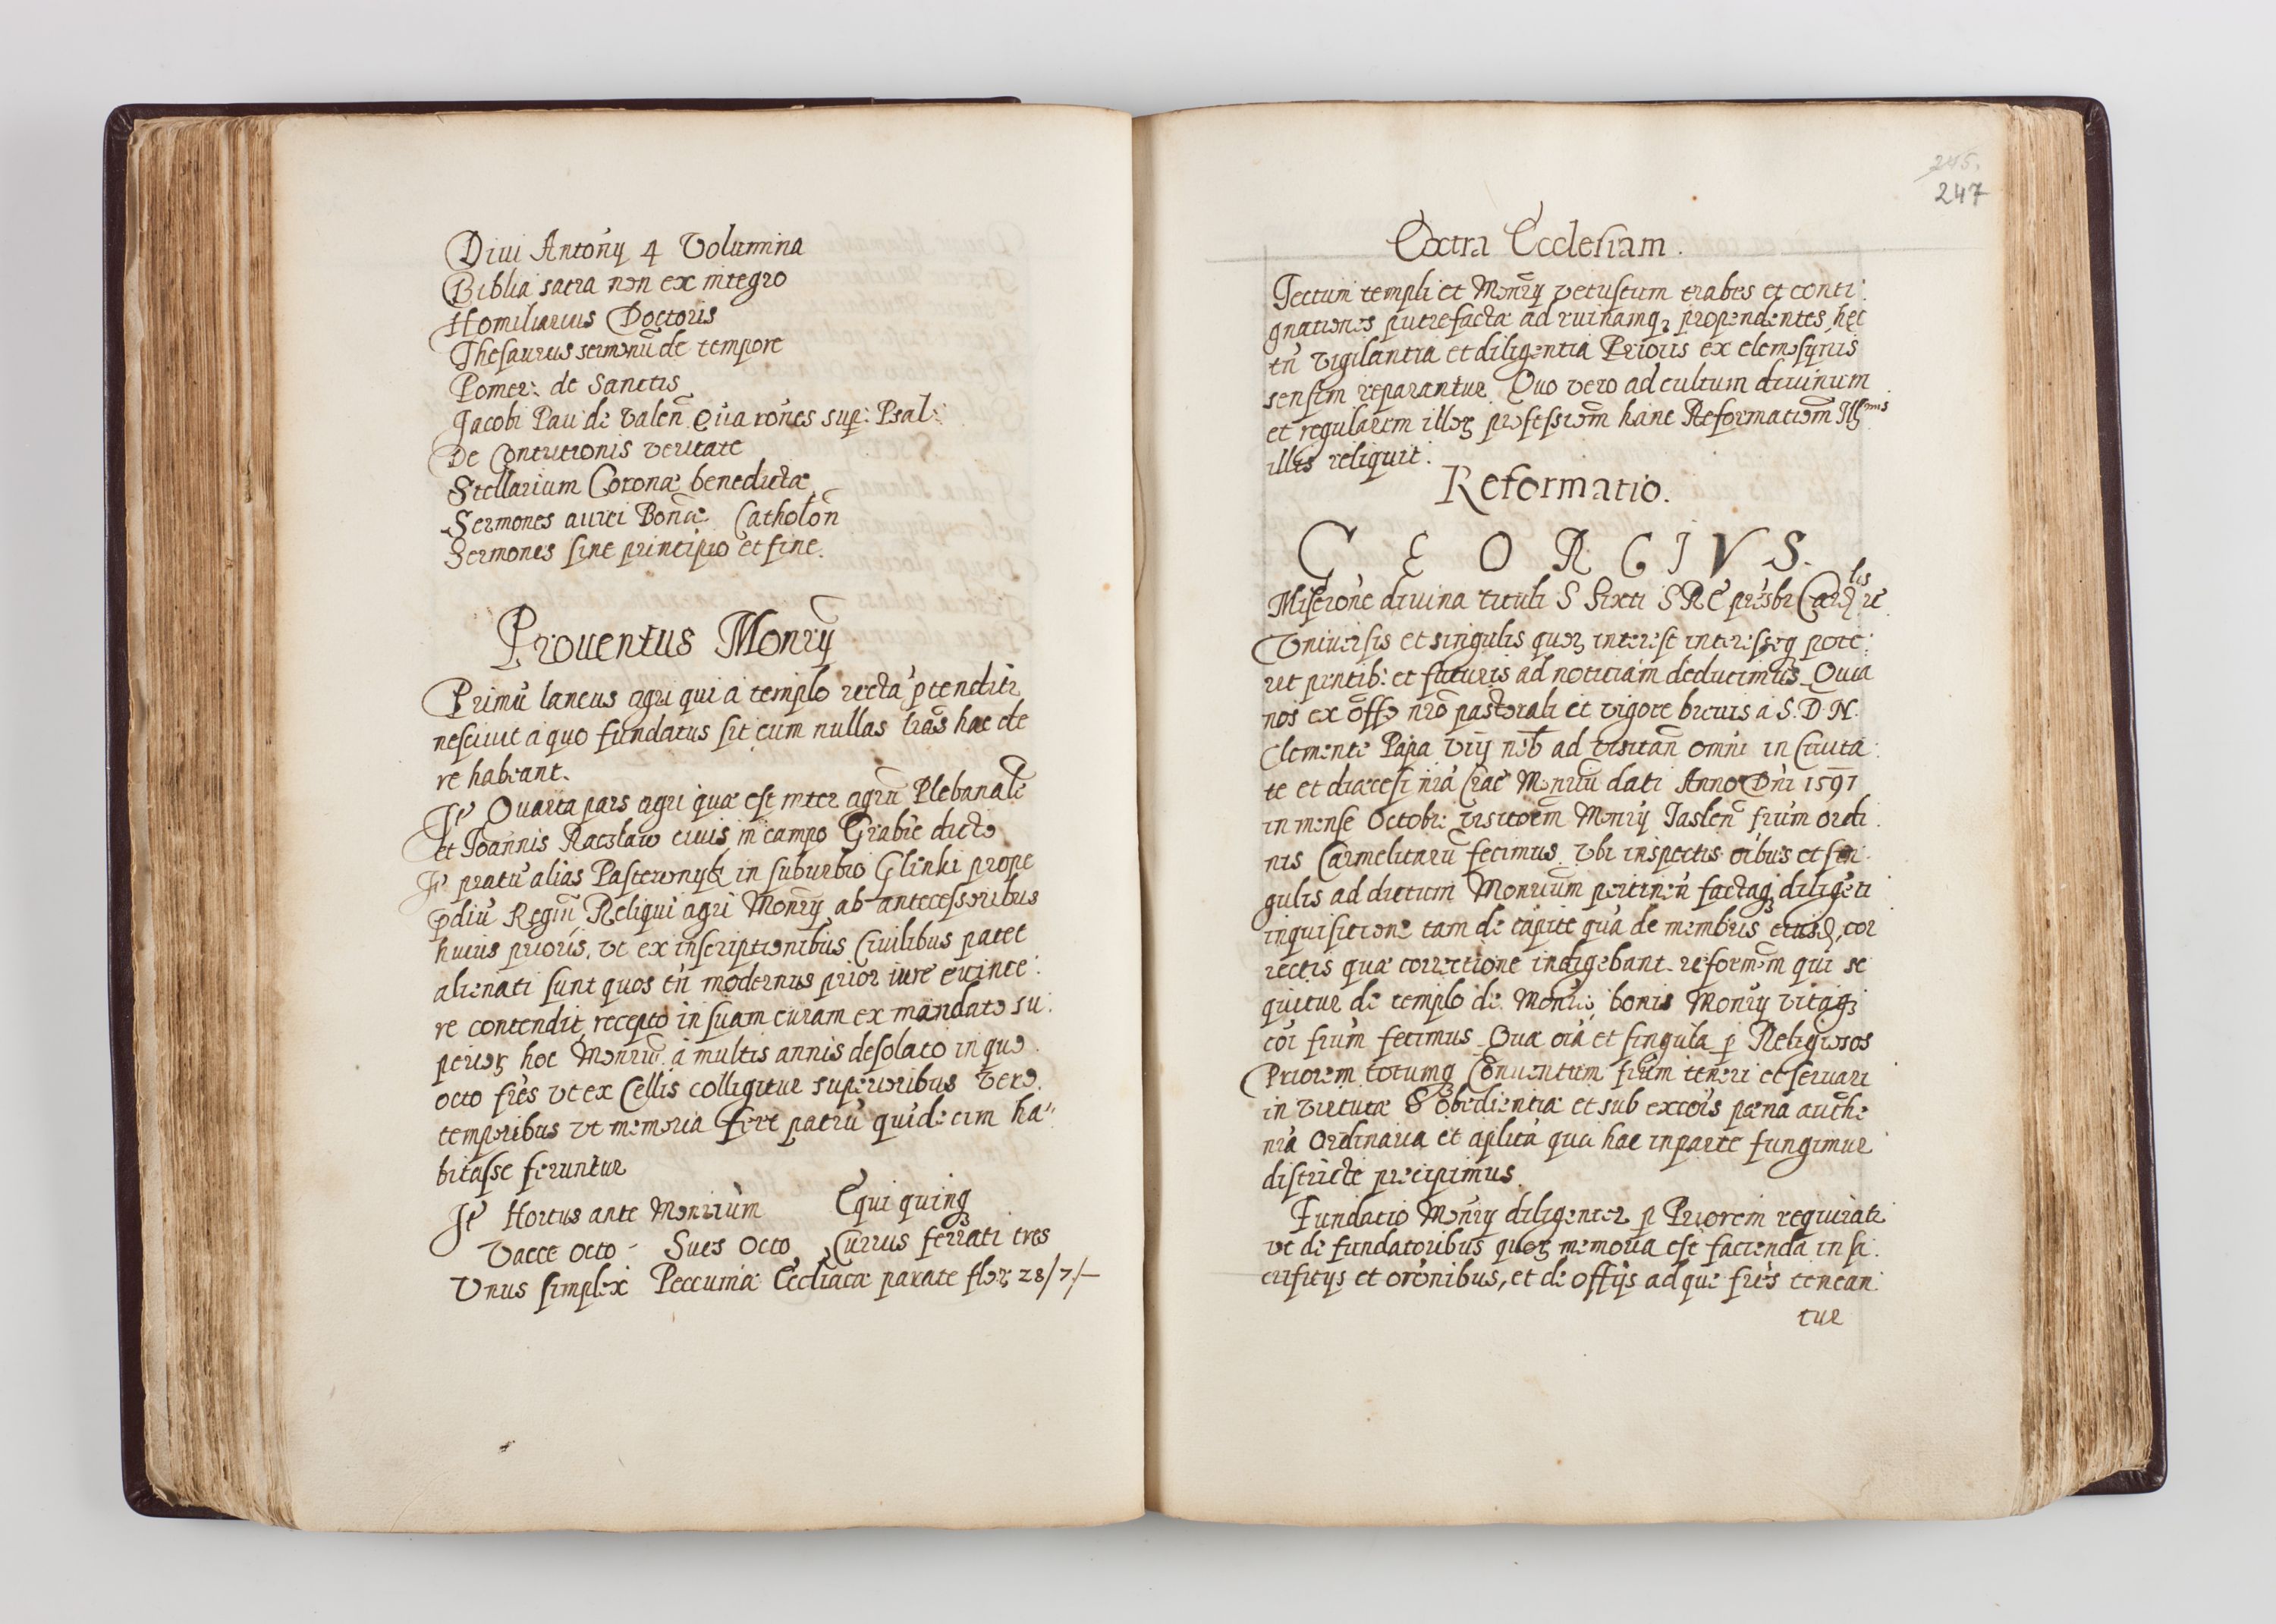 Diui Antonÿ 4 Volumina
Biblia sacra non ex integro
Homiliarius Doctoris
Thesaurus sermonū de tempore
Pomer: de Sanctis
Jacobi Pau de Valeñ sup: Psal:
De Contritionis veritate
Stellarium Coronæ benedictæ
Sermones aurei Bonæ Catholoñ
Sermones sine principio et fine.
Prouentus Monrÿ
Primū laneus agri qui a templo recta ptenditr
nesciut a quo fundatus sit cum nullas lras hac de
re habeant.
It Quarta pars agri quæ est inter agrū Plebanalē
et Joannis Racslaw ciuis in campo Grabie dicto
It pratū alias Pasternyk in suburbio Glinki prope
pdiū Regiū Reliqui agri Monrÿ ab antecessoribus
huius prioris, vt ex inscriptionibus Ciuilibus patet
alienati sunt quos tñ modernus prior iure euince:
re contendit, recepto in suam curam ex mandato su:
perioꝝ hoc Monriō a multis annis desolato in quo
octo frēs vt ex Cellis colligitur superioribus vero
temporibus vt memoria fert patrū quīdecim ha"
bitasse feruntur
It Hortus ante Monriūm Equi quinq
Vacce octo - Sues Octo Currus ferrati tres
Vnus simplex Peccuniæ Eccliacæ paratæ floꝝ 28/7/-
245.
247
Extra Ecclesiam.
Tectum templi et Monrÿ vetustum trabes et conti:
gnationes putrefactæ ad ruinamq propendentes, hęc
tñ vigilantia et diligentia Prioris ex elemosynis
sensim reparantur. Quo vero ad cultum diuinum
et regularem illoꝝ professiōm hanc Reformatiōm Illmus
illis reliquit.
Reformatio.
GEORGIVS.
Miserōne diuina tituli S Sixti S R E presbr Cardlis
Vniuersis et singulis quoꝝ interest interesseq pote:
rit pntib: et futuris ad noticiam deducimus. Quia
nos ex offo nro pastorali et vigore breuis a S. D. N.
Clemente Papa viij nob ad visitañ omni in Ciuita:
te et diæcesi nra Crac Monriū dati Anno Dni 1591
in mense Octobri visitoēm Monrÿ Jasleñ frūm ordi:
nis Carmelitarū fecimus. Vbi inspectis oibus et sin:
gulis ad dictum Monriūm pertineñ factaq diligēti
inquisitione tam de capite quā de membris eiusd, cor
rectis quæ correctione indigebant. reformōm quæ se
quitur de templo de Monrio, bonis Monrÿ vitaq
eor frūm fecimus. Quæ oīa et singula p Religiosos
Priorem totumq Conuentum frūm teneri et seruari
in virtute S obedientiæ et sub excōis pœna authe
nra Ordinaria et aplica qua hac in parte fungimur
districte precipimus.
Fundatio Monrÿ diligenter p Priorem requiratr
vt de fundatoribus quoꝝ memoria est facienda in sa:
crificijs et orōnibus, et de offijs ad quæ frēs tenean:
tur